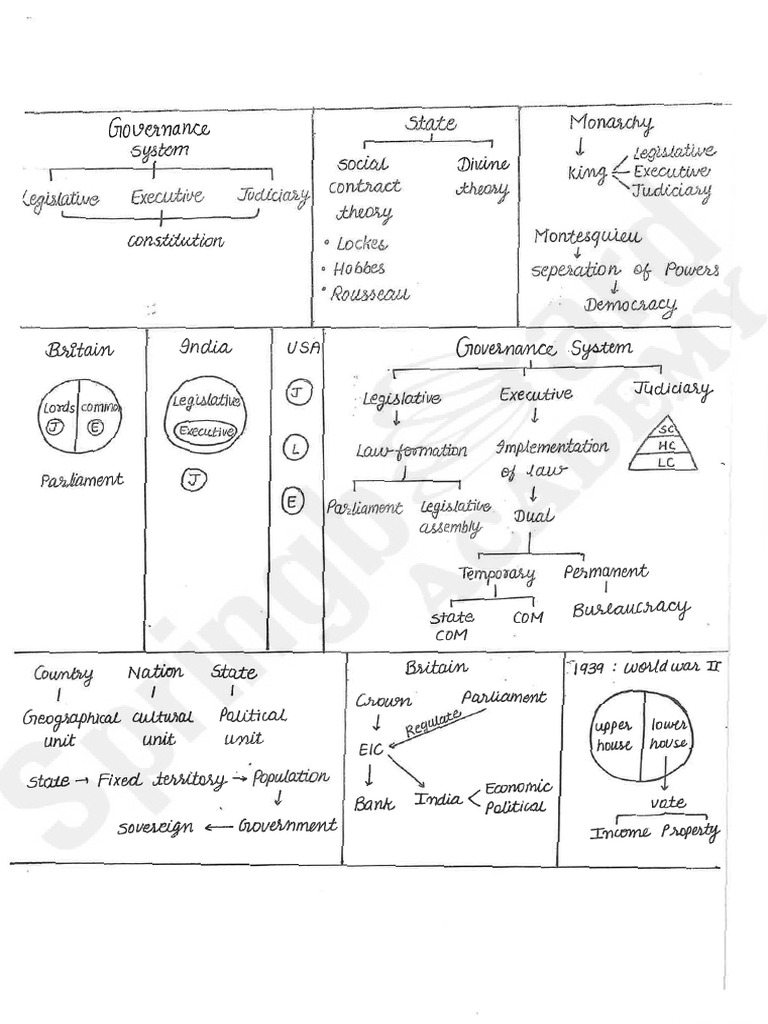 Governance
System
Legislative Executive Judiciary
constitution
State
social contract theory
Divine theory
• Lockes
• Hobbes
• Rousseau
Monarchy
King
Legislative
Executive
Judiciary
Montesquieu
seperation of Powers
Democracy
Britain
Lords
J
E
Parliament
India
Legislative
Executive
J
USA
J
L
E
Governance System
Legislative Executive Judiciary
Law formation
Parliament
Legislative assembly
Implementation of law
Dual
Temporary Permanent
State COM
COM
Bureaucracy
SC
HC
LC
Country Nation State
Geographical unit
cultural unit
Political unit
State → Fixed territory → Population
Sovereign ← Government
Britain
Crown Parliament
Regulate
EIC
Bank
India
Economic
Political
1939 : World war II
upper house
lower house
vote
Income Property
Springboard
ACADEMY